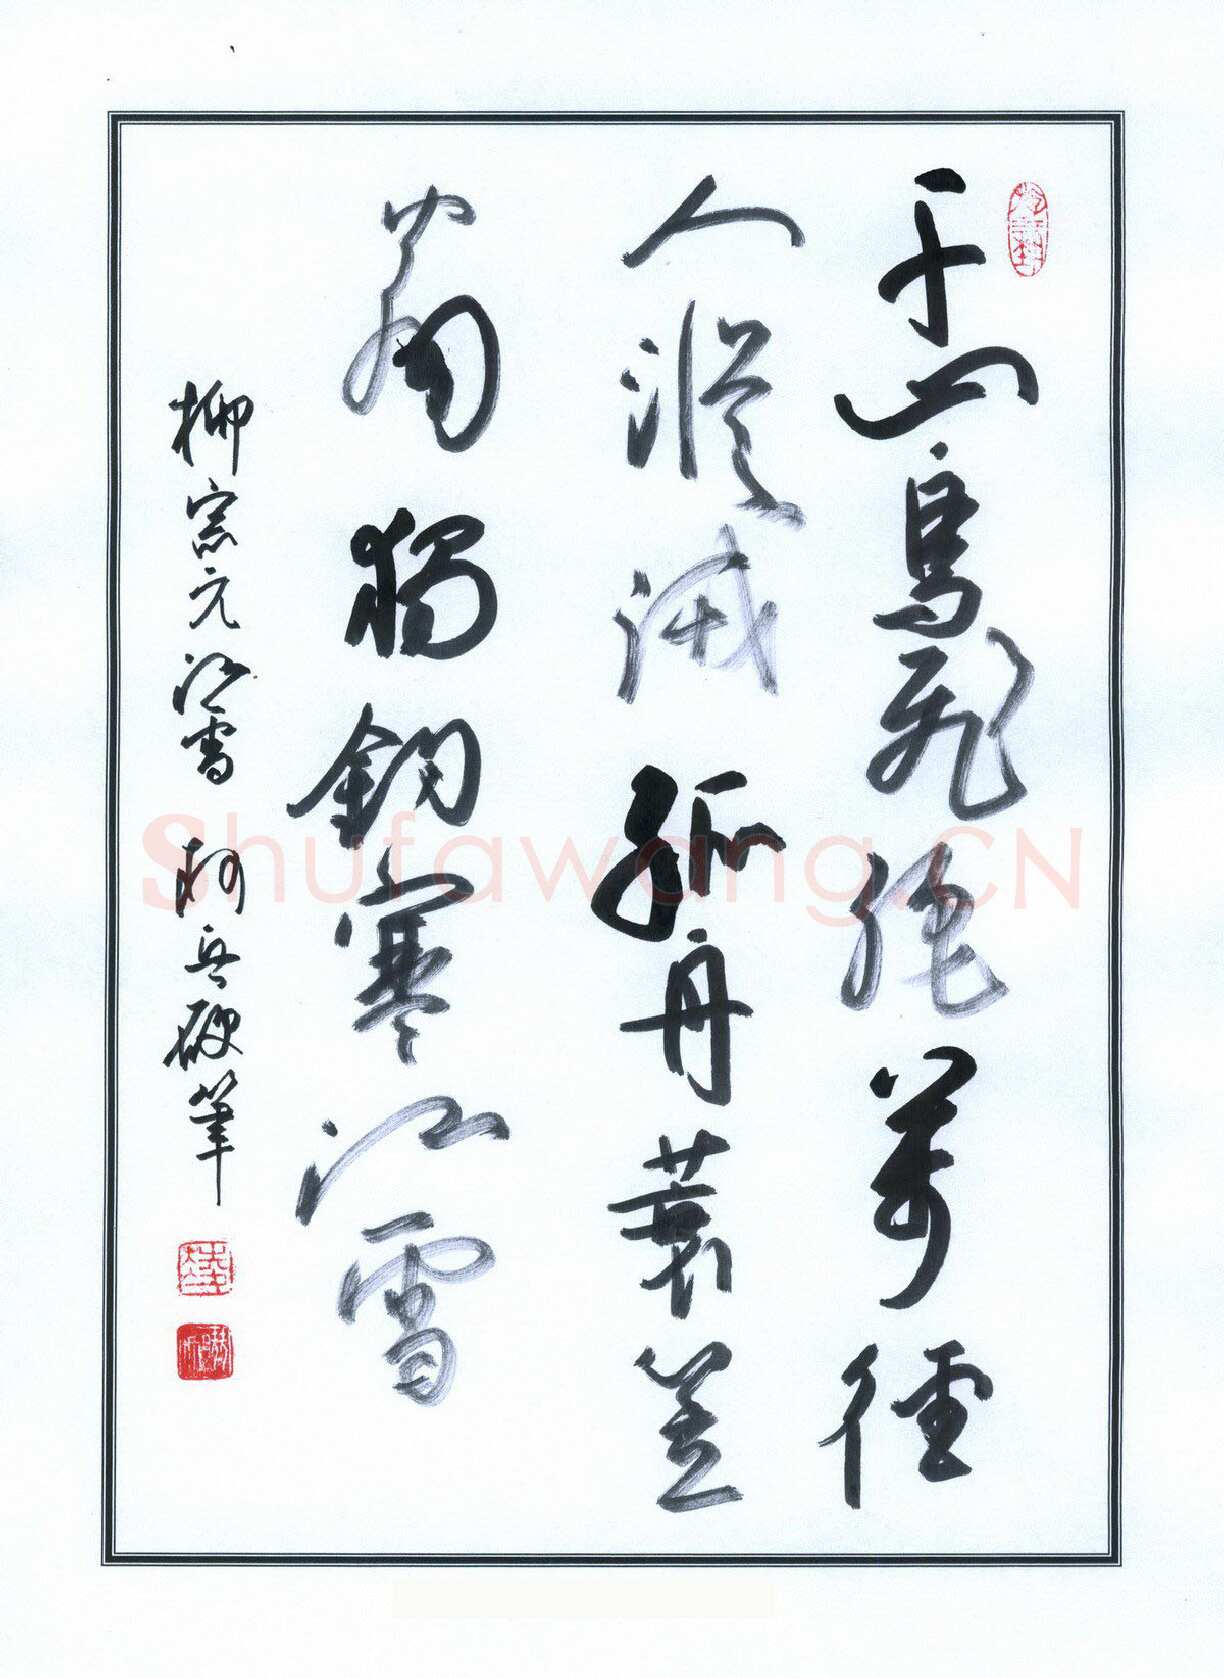 千山鳥飛絕萬徑
人蹤滅孤舟蓑笠
翁獨釣寒江雪
柳宗元江雪 柯兵硬筆
Shufawang.CN